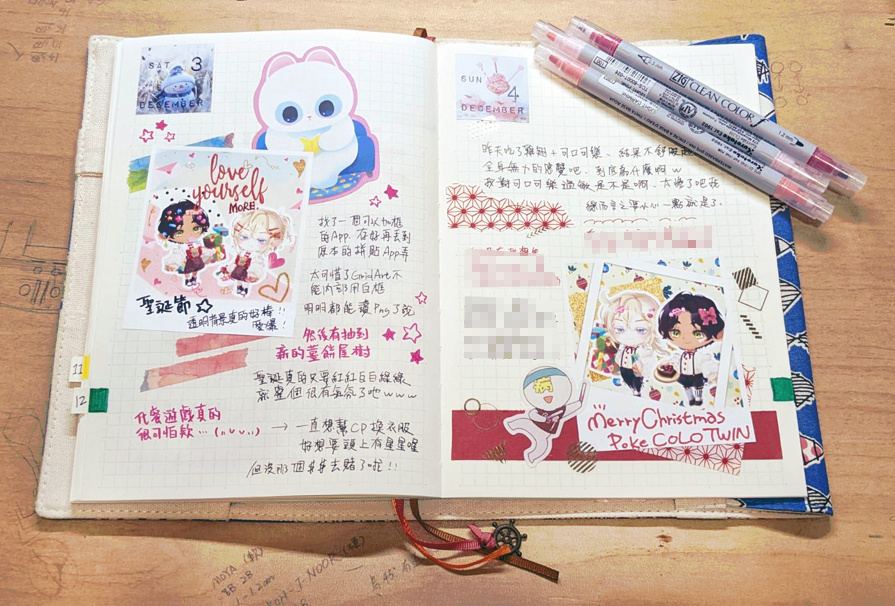 SAT 3
DECEMBER
love
yourself
MORE.
聖誕節 ☆
透明背景真的好棒!!
愛爆!
找了一個可以加框
的App, 在好再丟到
原本的拼貼App弄
太可惜了GridArt不
能內部用白框
明明都能讀Png了說
然後有抽到
新的薑餅屋樹
聖誕真的只要紅紅白白綠綠
就整個很有氣氛了吧www
代餐遊戲真的
很可怕欸…
→ 一直想幫CP換衣服
好想要頭上有星星喔
但沒那個$$去賭了啦!!
11
12
SUN 4
DECEMBER
昨天吃了雞翅+可口可樂、結果不舒服
全身無力的感覺吧,到底為什麼啊w
我對可口可樂過敏是不是啊,太慘了吧我
總而言之要小心一點就是了.
Merry Christmas
Poke COLO TWIN
ZIG CLEAN COLOR
MOYA (軟)
8B 2B
KOH-I-NOOR (硬)